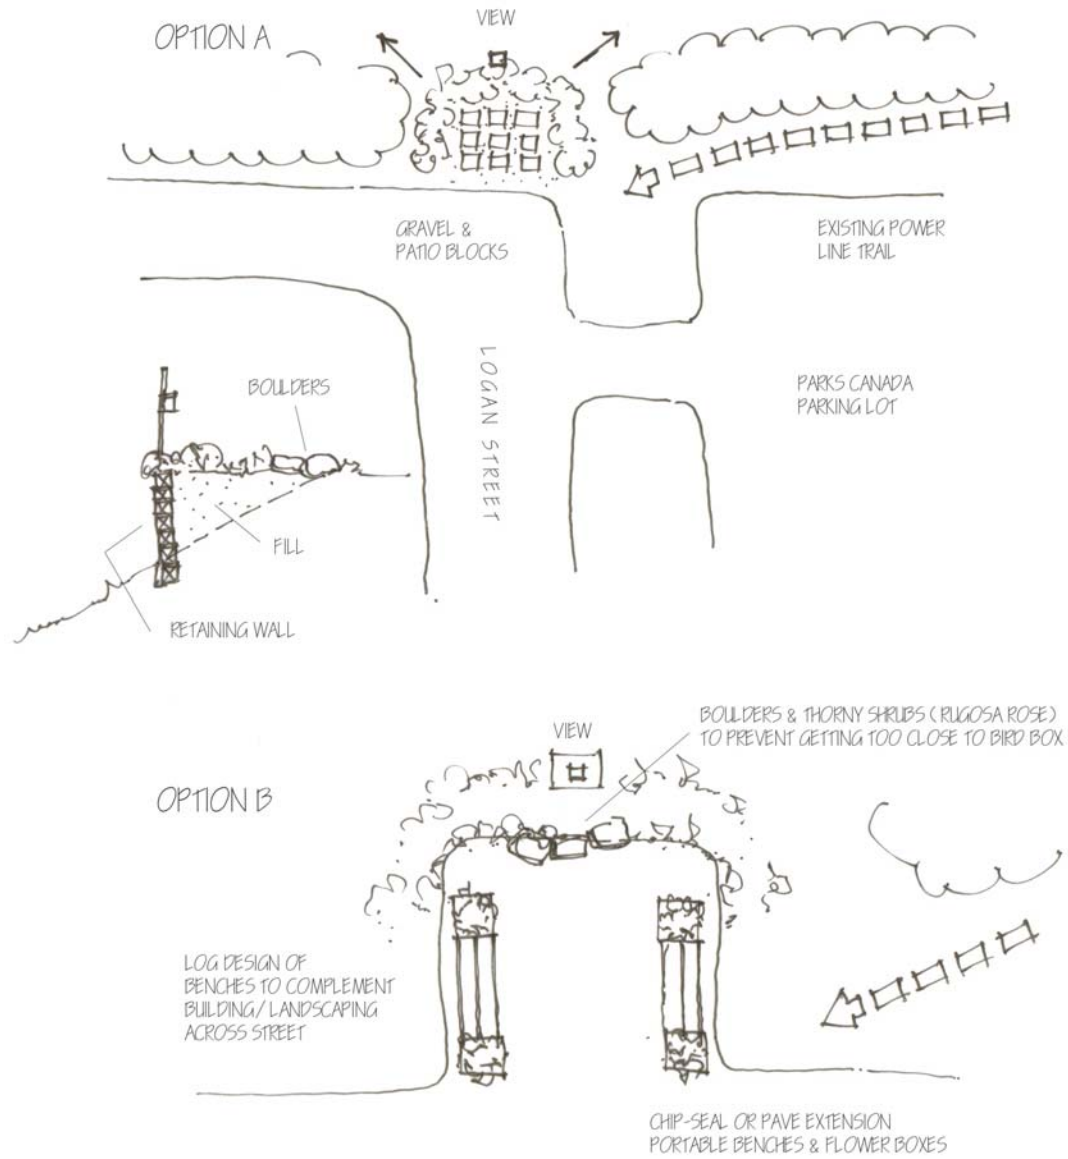 VIEW
OPTION A
GRAVEL &
PATIO BLOCKS
EXISTING POWER
LINE TRAIL
LOGAN STREET
PARKS CANADA
PARKING LOT
BOULDERS
FILL
RETAINING WALL
BOULDERS & THORNY SHRUBS (RUGOSA ROSE)
TO PREVENT GETTING TOO CLOSE TO BIRD BOX
VIEW
OPTION B
LOG DESIGN OF
BENCHES TO COMPLEMENT
BUILDING/LANDSCAPING
ACROSS STREET
CHIP-SEAL OR PAVE EXTENSION
PORTABLE BENCHES & FLOWER BOXES